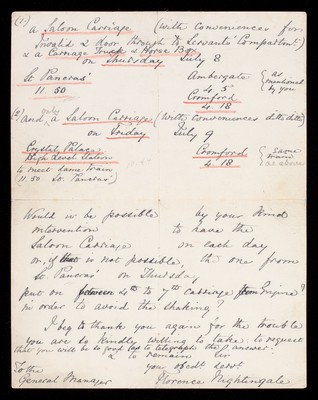 (1)
a Saloon Carriage (with conveniences for
Invalid & door through to Servants' Compartmt.)
& a Carriage Truck & Horse Box
on Thursday July 8
St. Pancras' Ambergate { as
11. 50 4. 5 mentioned
Cromford by you
4. 18
(2) and a Saloon Carriage (with conveniences ditto ditto)
on Friday July 9
Crystal Palace: Cromford { same
High Level Station 4. 18 train
to meet same train as above
(11. 50 St. Pancras')
Would it be possible by your kind
intervention to have the
Saloon Carriage on each day
or, if that is not possible, the one from
St. Pancras' on Thursday
put on between 4th to 7th carriage from Engine?
in order to avoid the shaking?
I beg to thank you again for the trouble
you are so kindly willing to take: to request
that you will be so good as to telegraph the answer:
& to remain Sir
To the your obedt. servt.
General Manager Florence Nightingale